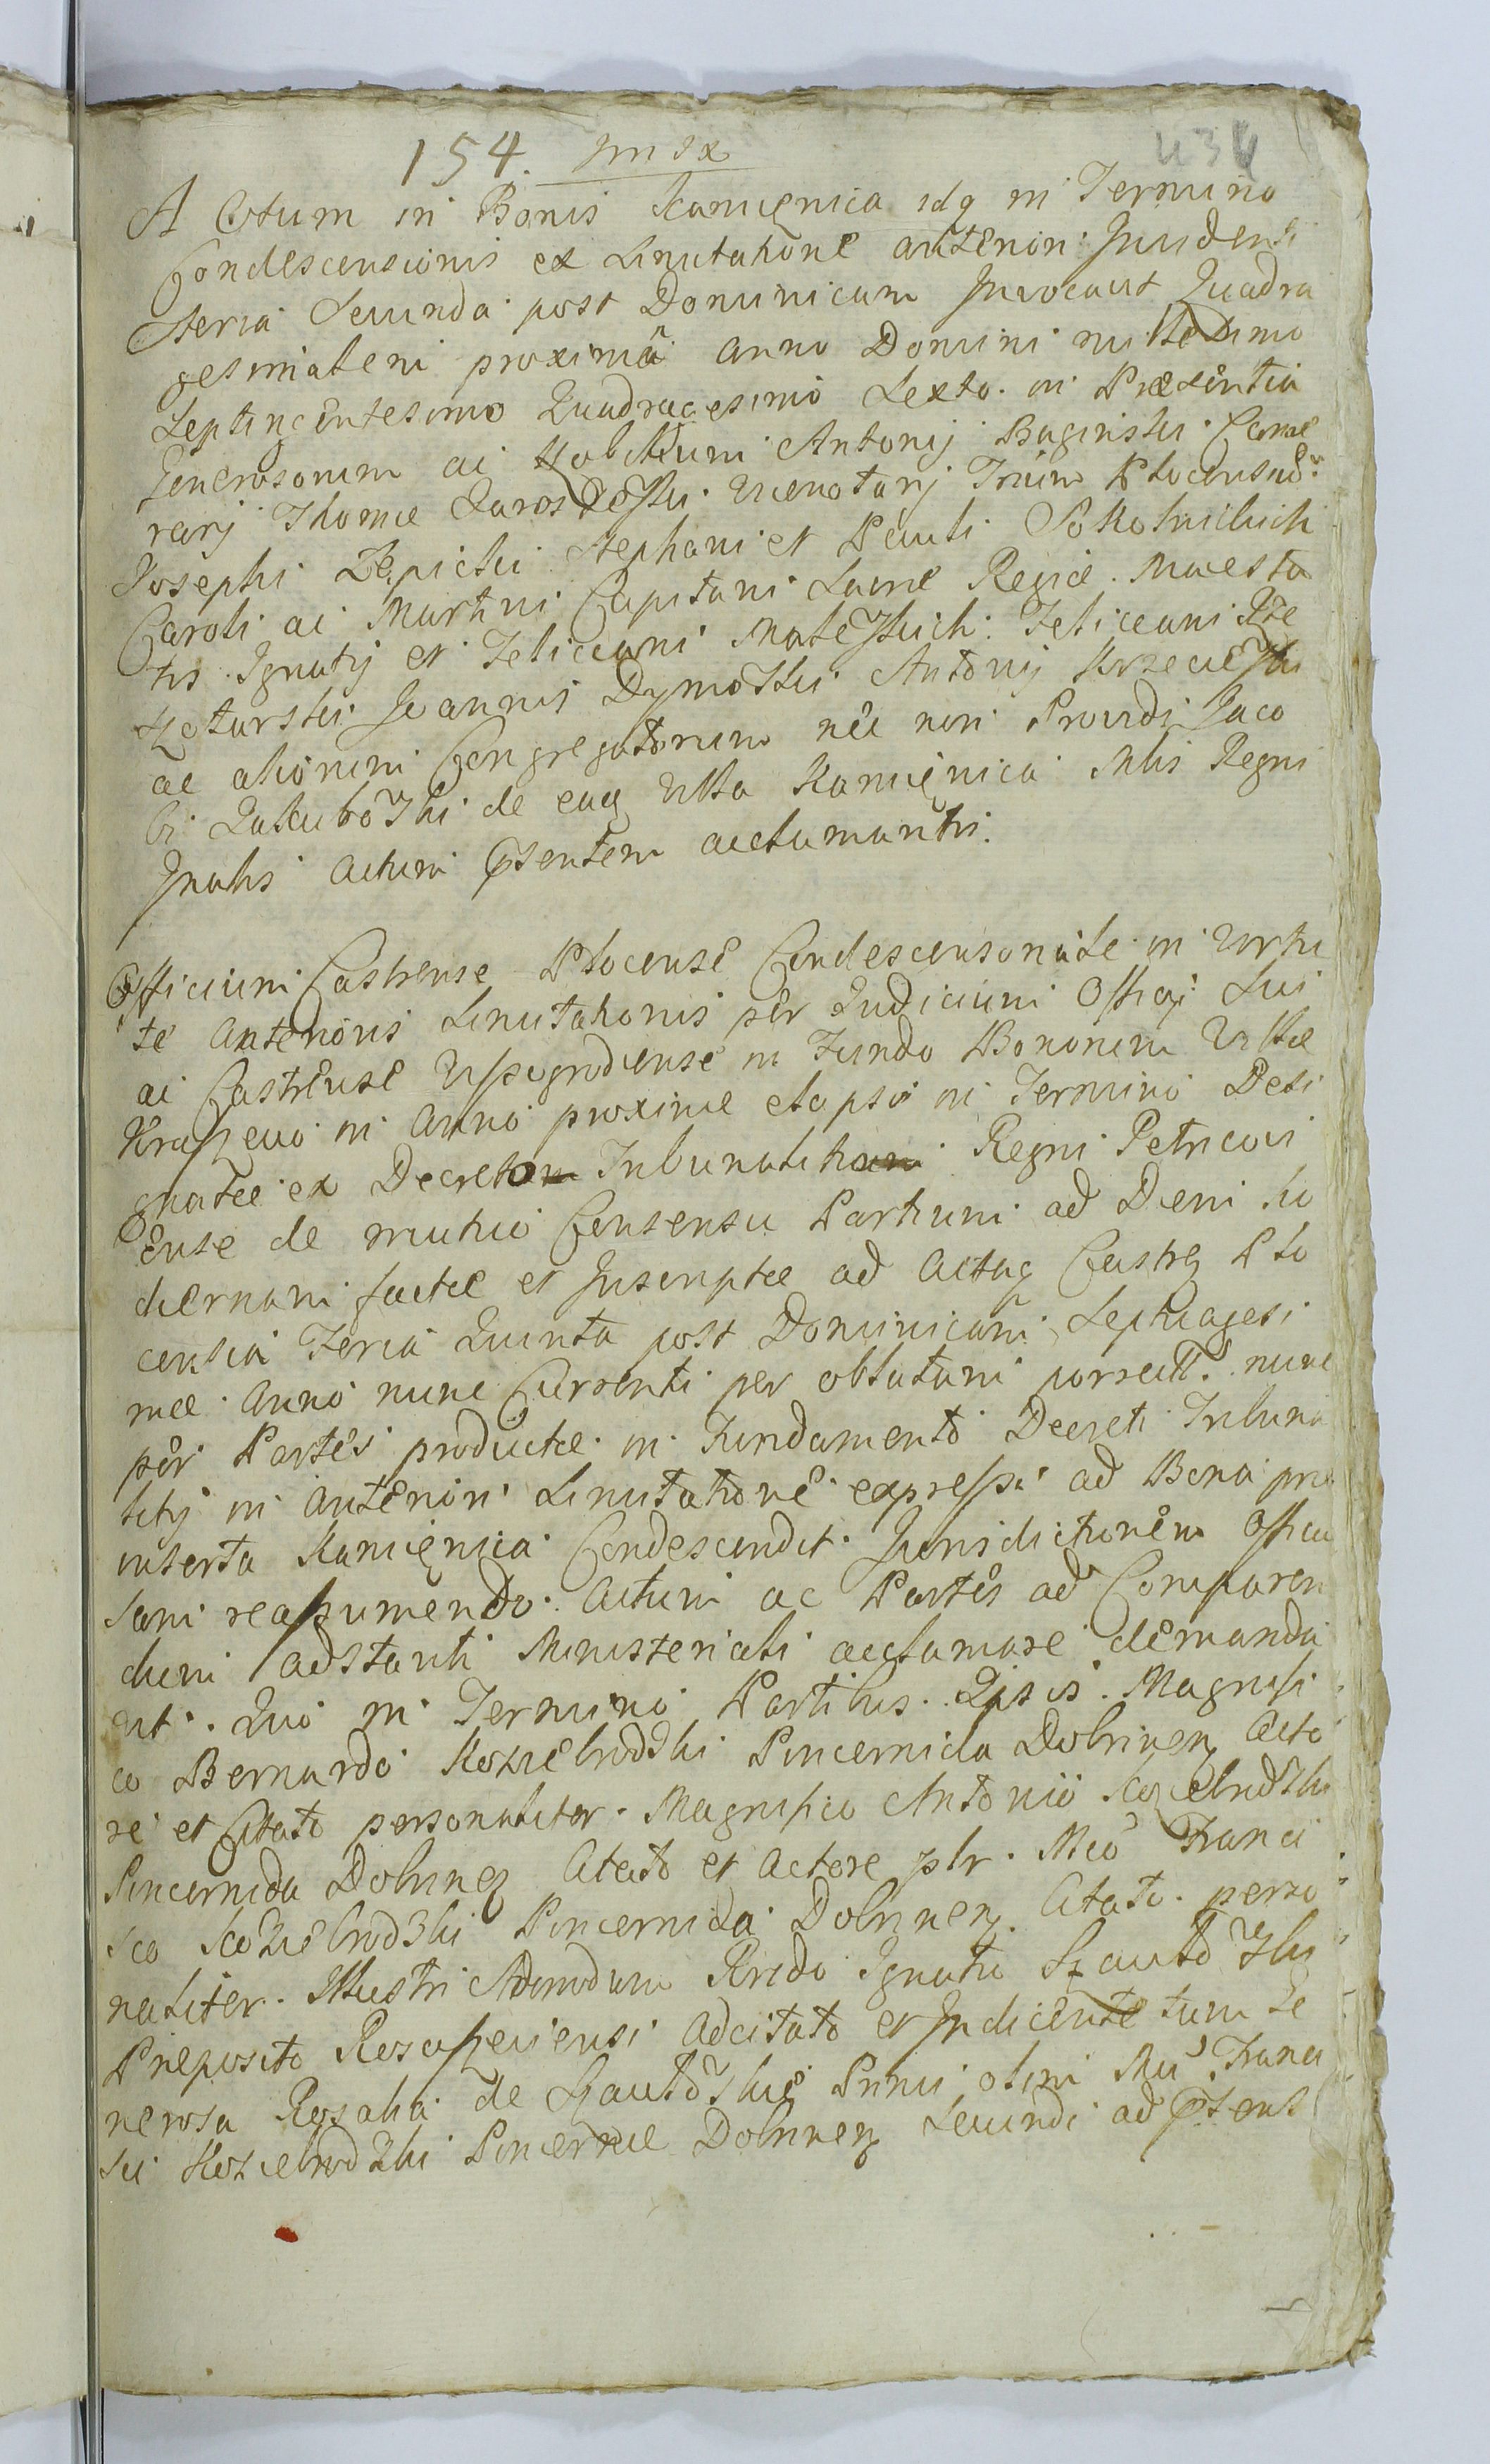 154. 434
Actum in Bonis Kamięnica idq in Termino
Condescensionis ex Limitatione anterion Incidenti
Feria Secunda post Dominicam Invocavit Quadra
gesimaleni proxima Anno Domini millesimo
Septingentesimo Quadragesimo Sexto. in Præsentia
Generosorum ac Nobilium Antonij Baginski Came
rarj Thomæ Vicenotarj Trium Plocensium
Josephi Stephani et Pauli Sokolnickich
Caroli ac Martini Capitani Sacræ Regiæ Maiesta
tis Ignatij et Feliciani Feliciani
Joannis Dymoski Antonij
ac aliorum Congregatorum nec non Providi Jaco
bi Jakuboski de eaq Villa Kamięnica Mlis Regni
Gnalis Actum pntem acclamantis.
Officium Castrense Plocense Condescensoriale in virtu
te Anterioris Limitationis per Judicium Officij Sui
ac Castrense Vyssogrodiense in Fundo Bonorum Villæ
in Anno proxime elapso in Termino Desi
gnatæ ex Decreto Tribunali Regni Petricovi
ense de mutuo Consensu Partium ad Diem ho
diernam factæ et Inscriptæ ad Actaq Castrq Plo
censia Feria Quinta post Dominicam Septuagesi
mæ Anno nunc Currenti per oblatam porrectæ nunc
per Partes productæ in Fundamento Decreti Tribuna
litij in Anteriori Limitatione expressi ad Bona præ
inserta Kamięnica Condescendit. Jurisdictionem Officio
sam reassumendo. Actum ac Partes ad Comparen
dum adstanti Ministeriali acclamare demanda
vit. Quo in Termino Partibus Ipsis. Magnifi
co Bernardo Koziebrodzki Pincernida Dobrinen Acto
re et Citato personaliter. Magnifico Antonio Koziebrodzki
Pincernida Dobrinen Citato et Actore plr. Mco Franci
sco Koziebrodzki Pincernida Dobrinen Citato perso
naliter. Illustri Admodum Rndo Ignatio
Præposito Adcitato et Indicente tum Ge
nerosa Rosalia de Primi olim Mci Franci
sci Koziebrodzki Pincernæ Dobrinen Secundi ad pnt